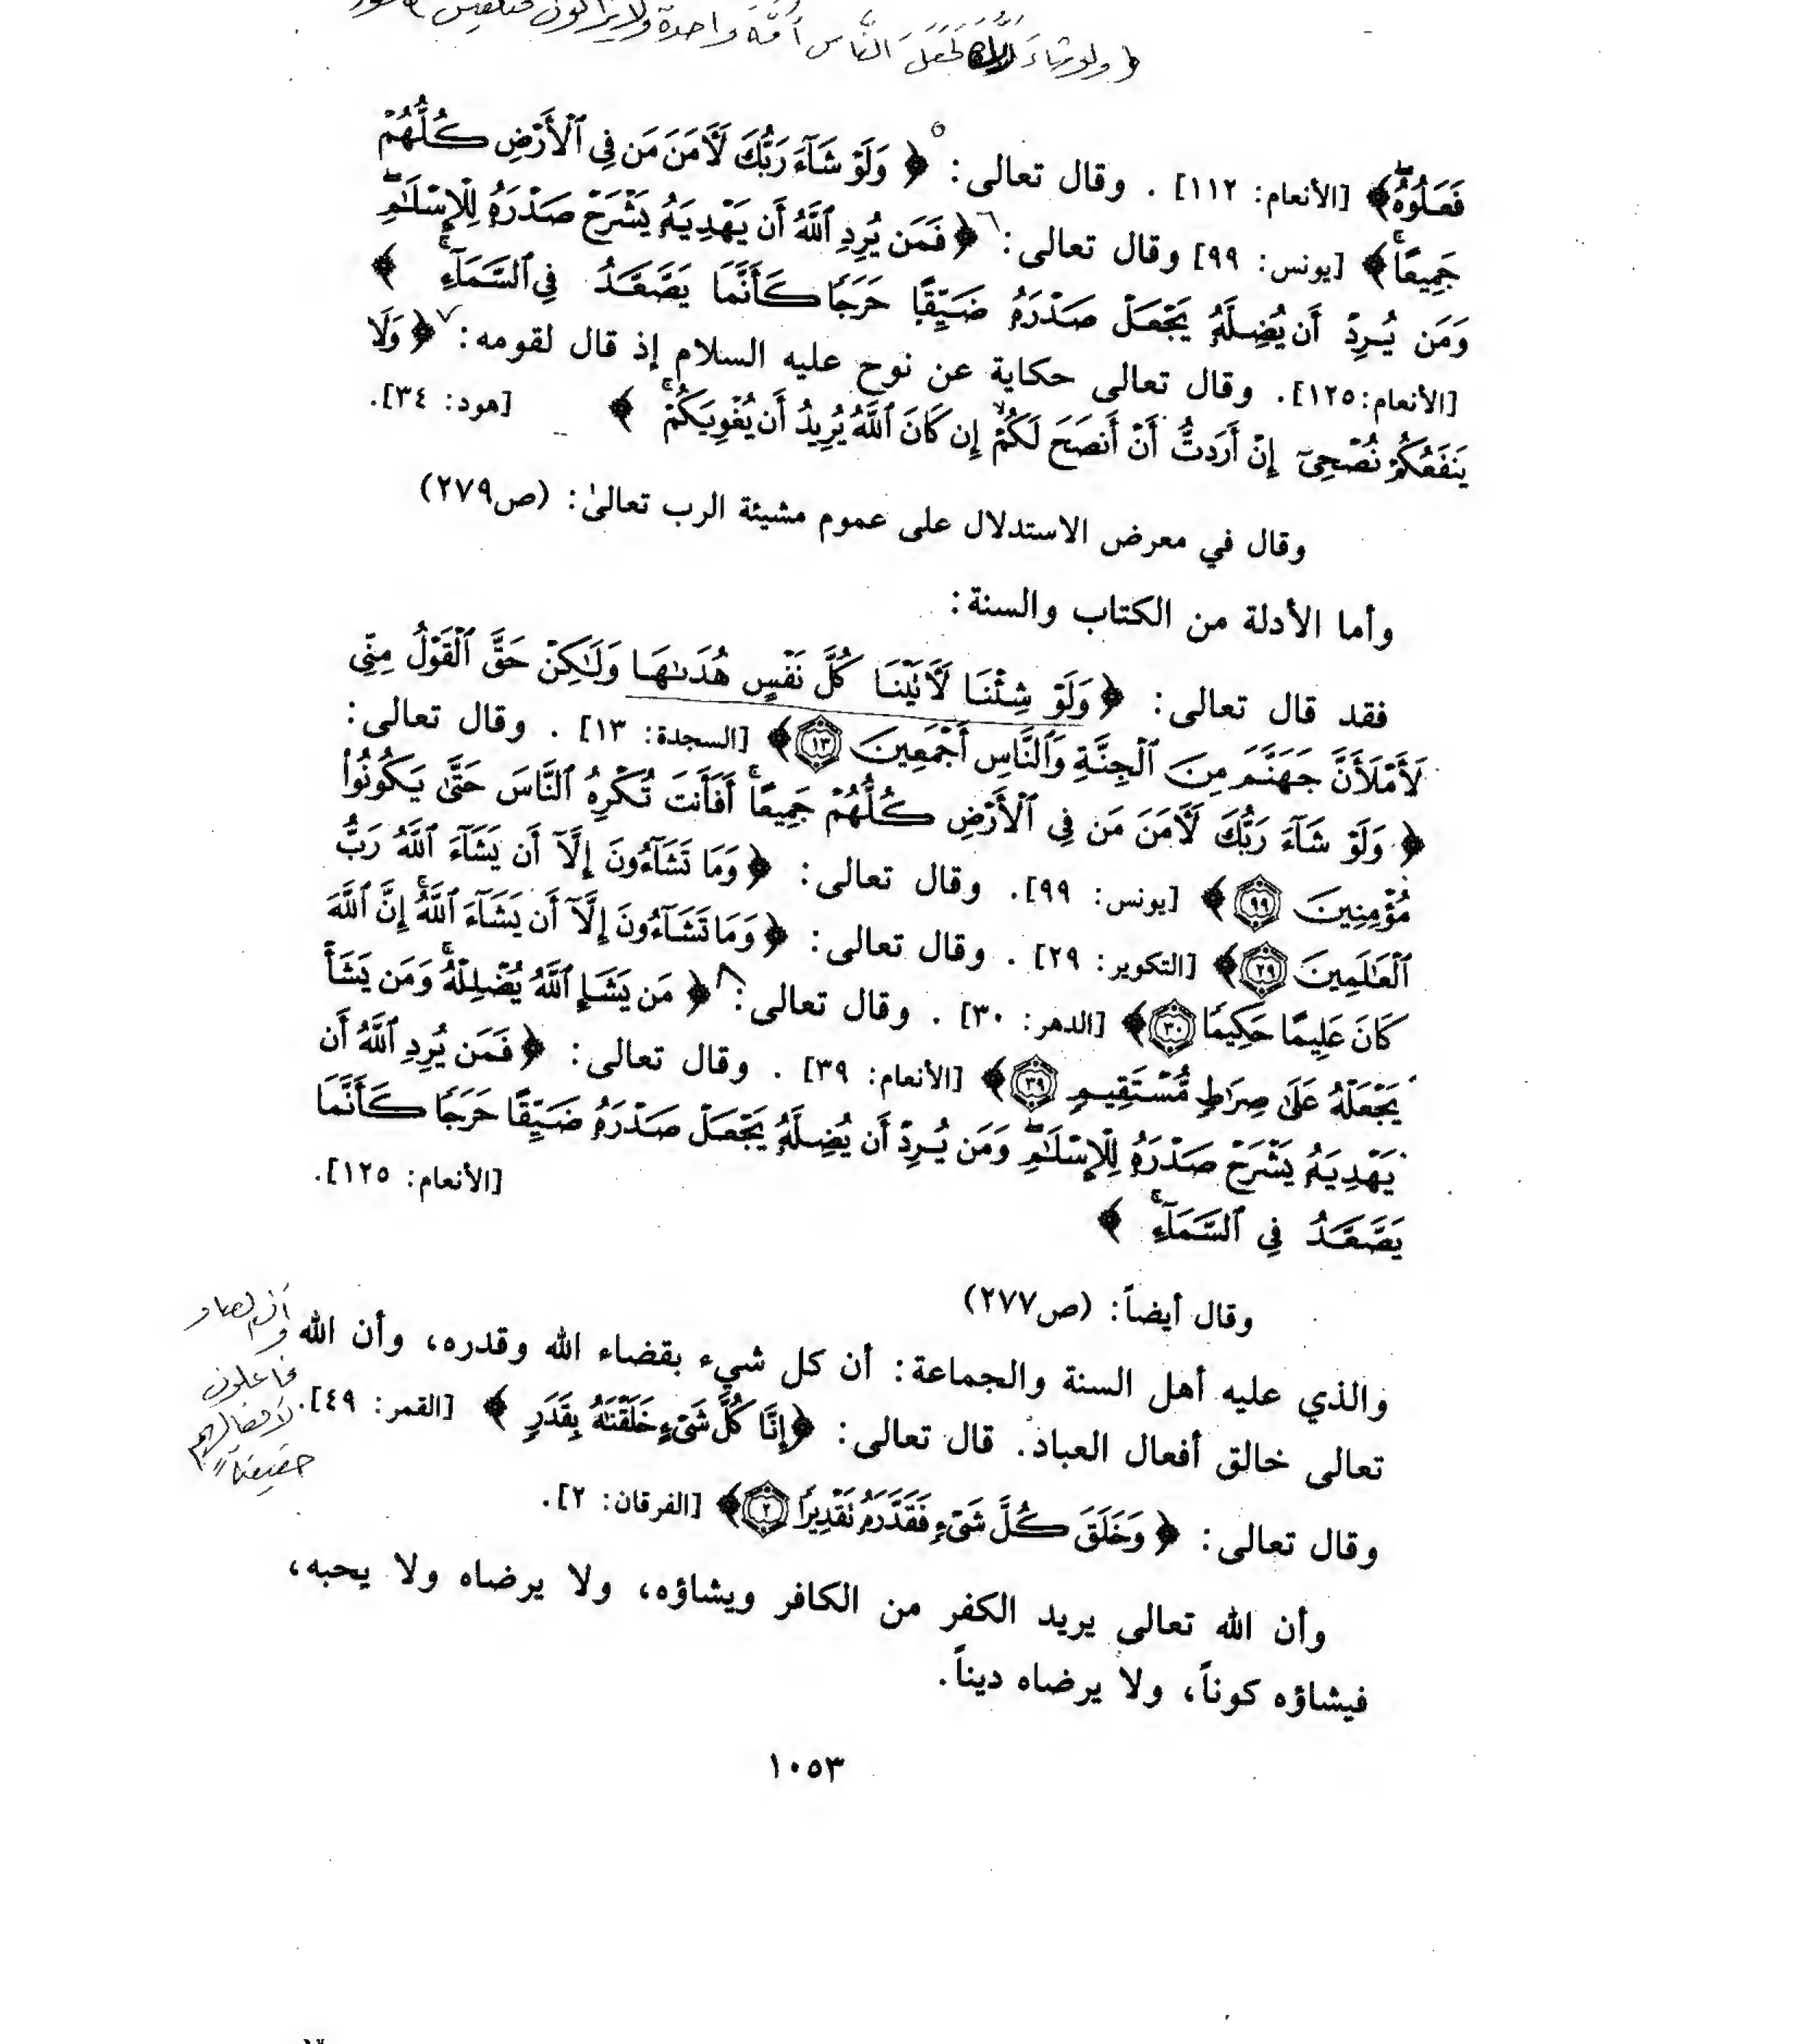 ﴿ ولو شاءَ ربك لَجَعَلَ النَّاس أُمَّة واحدة ولا يزالون مختلفين
فَعَلُوهُ﴾ [الأنعام: ١١٢] . وقال تعالى: ٥ ﴿ وَلَوْ شَآءَ رَبُّكَ لَأٓمَنَ مَن فِى ٱلْأَرْضِ كُلُّهُمْ
جَمِيعًا﴾ [يونس: ٩٩] وقال تعالى: ٦ ﴿ فَمَن يُرِدِ ٱللَّهُ أَن يَهْدِيَهُۥ يَشْرَحْ صَدْرَهُۥ لِلْإِسْلَٰمِ
وَمَن يُرِدْ أَن يُضِلَّهُۥ يَجْعَلْ صَدْرَهُۥ ضَيِّقًا حَرَجًا كَأَنَّمَا يَصَّعَّدُ فِى ٱلسَّمَآءِ ﴾
[الأنعام: ١٢٥]. وقال تعالى حكاية عن نوح عليه السلام إذ قال لقومه: ٧ ﴿ وَلَا
يَنفَعُكُمْ نُصْحِىٓ إِنْ أَرَدتُّ أَنْ أَنصَحَ لَكُمْ إِن كَانَ ٱللَّهُ يُرِيدُ أَن يُغْوِيَكُمْ ﴾ [هود: ٣٤].
وقال في معرض الاستدلال على عموم مشيئة الرب تعالىٰ: (ص٢٧٩)
وأما الأدلة من الكتاب والسنة:
فقد قال تعالى: ﴿ وَلَوْ شِئْنَا لَأٓتَيْنَا كُلَّ نَفْسٍ هُدَىٰهَا وَلَٰكِنْ حَقَّ ٱلْقَوْلُ مِنِّى
لَأَمْلَأَنَّ جَهَنَّمَ مِنَ ٱلْجِنَّةِ وَٱلنَّاسِ أَجْمَعِينَ ١٣﴾ [السجدة: ١٣] . وقال تعالى:
﴿ وَلَوْ شَآءَ رَبُّكَ لَأٓمَنَ مَن فِى ٱلْأَرْضِ كُلُّهُمْ جَمِيعًا أَفَأَنتَ تُكْرِهُ ٱلنَّاسَ حَتَّىٰ يَكُونُوا۟
مُؤْمِنِينَ ٩٩﴾ [يونس: ٩٩]. وقال تعالى: ﴿ وَمَا تَشَآءُونَ إِلَّآ أَن يَشَآءَ ٱللَّهُ رَبُّ
ٱلْعَٰلَمِينَ ٢٩﴾ [التكوير: ٢٩] . وقال تعالى: ﴿ وَمَا تَشَآءُونَ إِلَّآ أَن يَشَآءَ ٱللَّهُ إِنَّ ٱللَّهَ
كَانَ عَلِيمًا حَكِيمًا ٣٠﴾ [الدهر: ٣٠] . وقال تعالى: ٨ ﴿ مَن يَشَإِ ٱللَّهُ يُضْلِلْهُ وَمَن يَشَأْ
يَجْعَلْهُ عَلَىٰ صِرَٰطٍ مُّسْتَقِيمٍ ٣٩﴾ [الأنعام: ٣٩] . وقال تعالى: ﴿ فَمَن يُرِدِ ٱللَّهُ أَن
يَهْدِيَهُۥ يَشْرَحْ صَدْرَهُۥ لِلْإِسْلَٰمِ وَمَن يُرِدْ أَن يُضِلَّهُۥ يَجْعَلْ صَدْرَهُۥ ضَيِّقًا حَرَجًا كَأَنَّمَا
يَصَّعَّدُ فِى ٱلسَّمَآءِ ﴾ [الأنعام: ١٢٥].
وقال أيضاً: (ص٢٧٧)
والذي عليه أهل السنة والجماعة: أن كل شيء بقضاء الله وقدره، وأن الله
تعالى خالق أفعال العباد. قال تعالى: ﴿إِنَّا كُلَّ شَىْءٍ خَلَقْنَٰهُ بِقَدَرٍ ﴾ [القمر: ٤٩].
فاعلون
لأفعالهم
حقيقة
وقال تعالى: ﴿ وَخَلَقَ كُلَّ شَىْءٍ فَقَدَّرَهُۥ تَقْدِيرًا ٢﴾ [الفرقان: ٢].
وأن الله تعالى يريد الكفر من الكافر ويشاؤه، ولا يرضاه ولا يحبه،
فيشاؤه كوناً، ولا يرضاه ديناً.
١٠٥٣